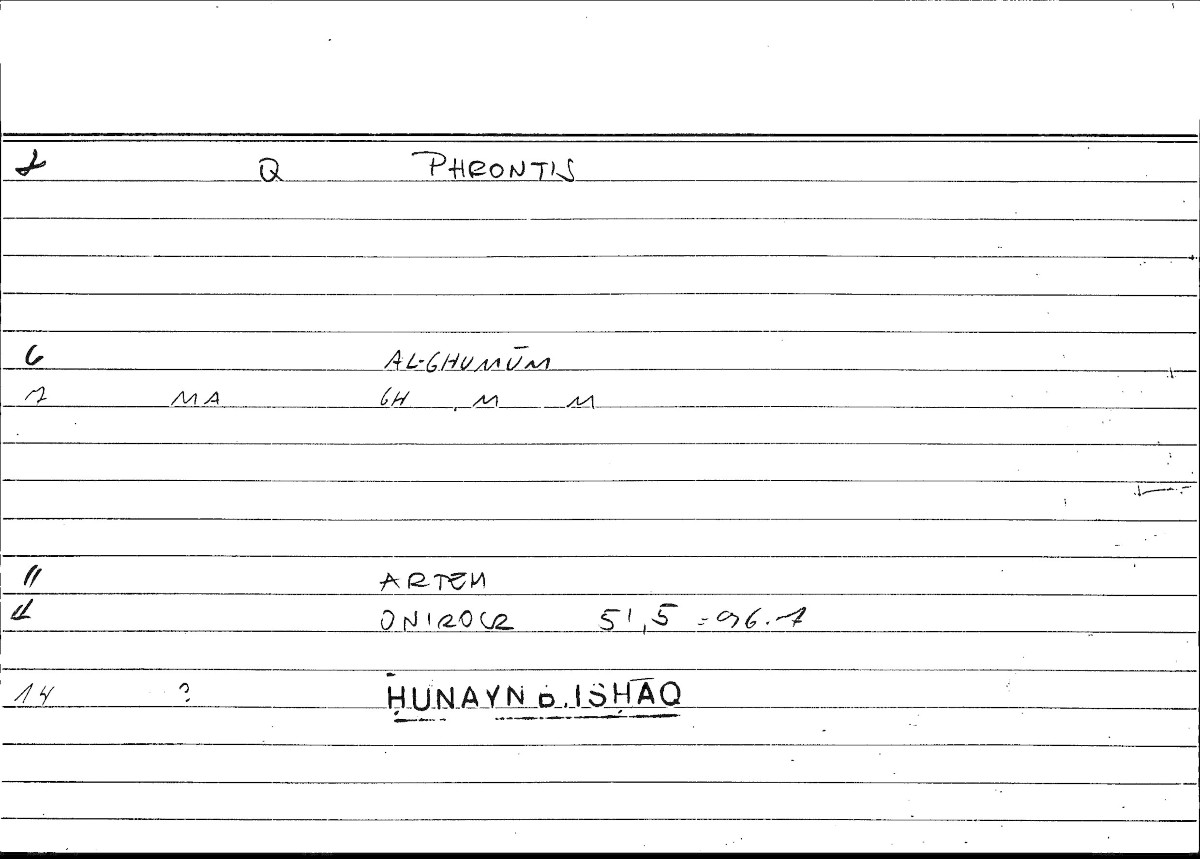 Q PHRONTIS
6 AL-GHUMŪM
7 MA GH . M M
11 ARTEM
ONIROCR 51,5 = 96.7
14 ? ḤUNAYN B. ISḤĀQ